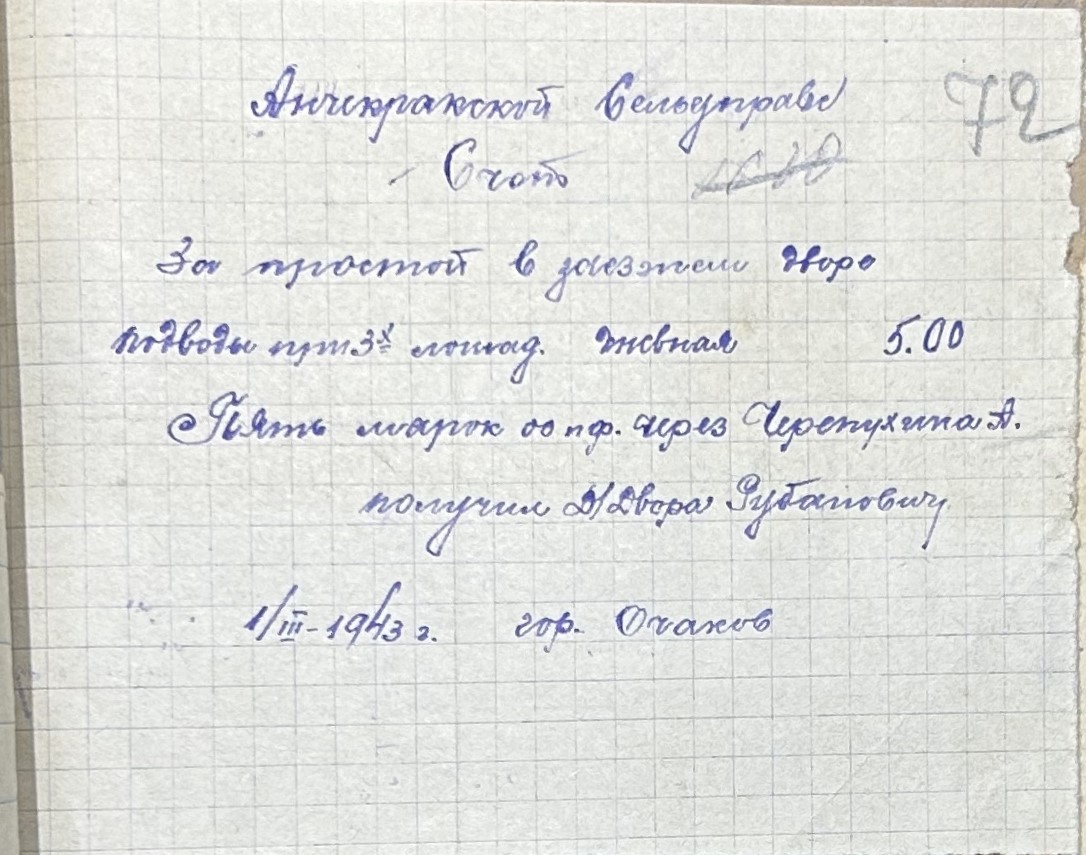 Анчекракской Сельуправе
72
Счот
За простой в заезжем дворе
подводы при 3х лошад. дневная 5.00
Пять марок 00 пф. через Черепухина А.
получил З/Двора Рубанович
1/III-1943 г. гор. Очаков